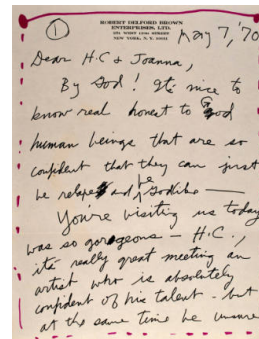 1
ROBERT DELFORD BROWN
ENTERPRISES, LTD.
NEW YORK, N. Y.
May 7, '70
Dear H.C & Joanna,
By God! It's nice to
know real honest to God
human beings that are so
confident that they can just
be and be Godlike —
You're visiting us today
was so gorgeous — H.C.,
it's really great meeting an
artist who is absolutely
confident of his talent - but
at the same time be unsure